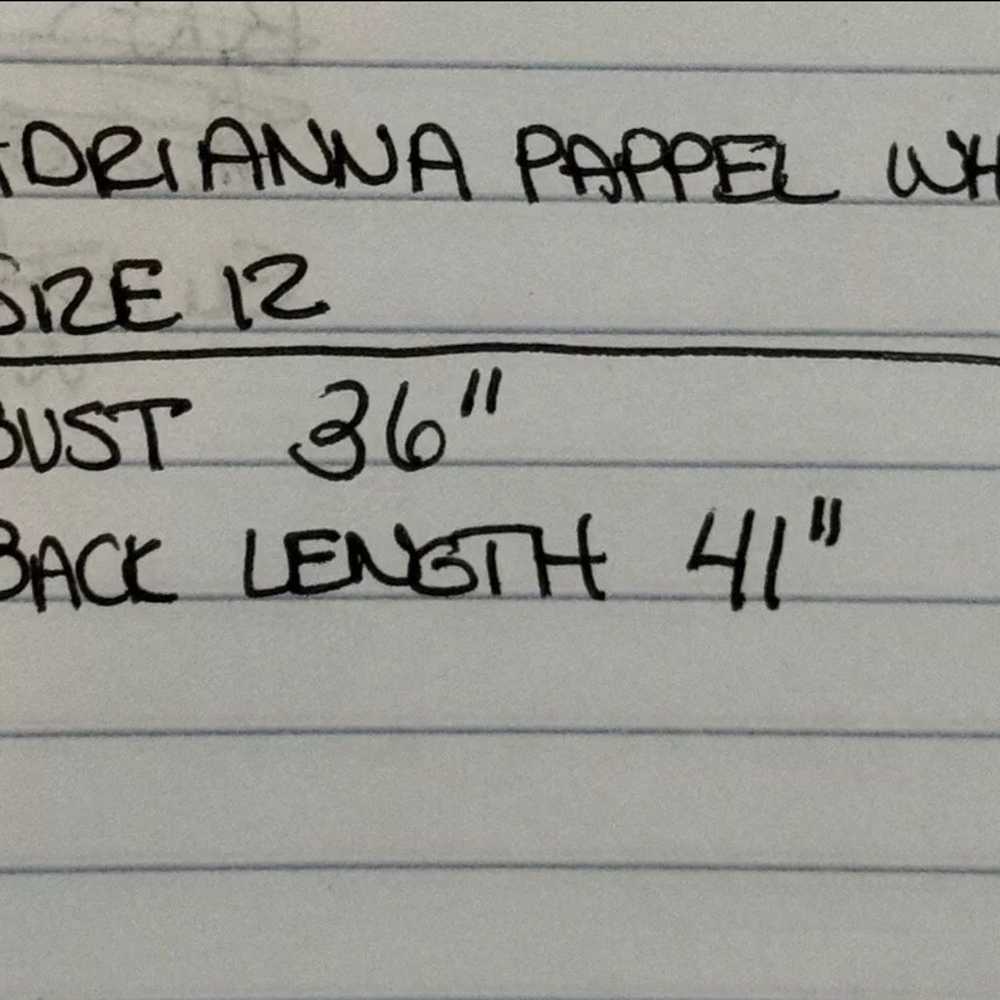 ADRIANNA PAPPEL WH
SIZE 12
BUST 36"
BACK LENGTH 41"